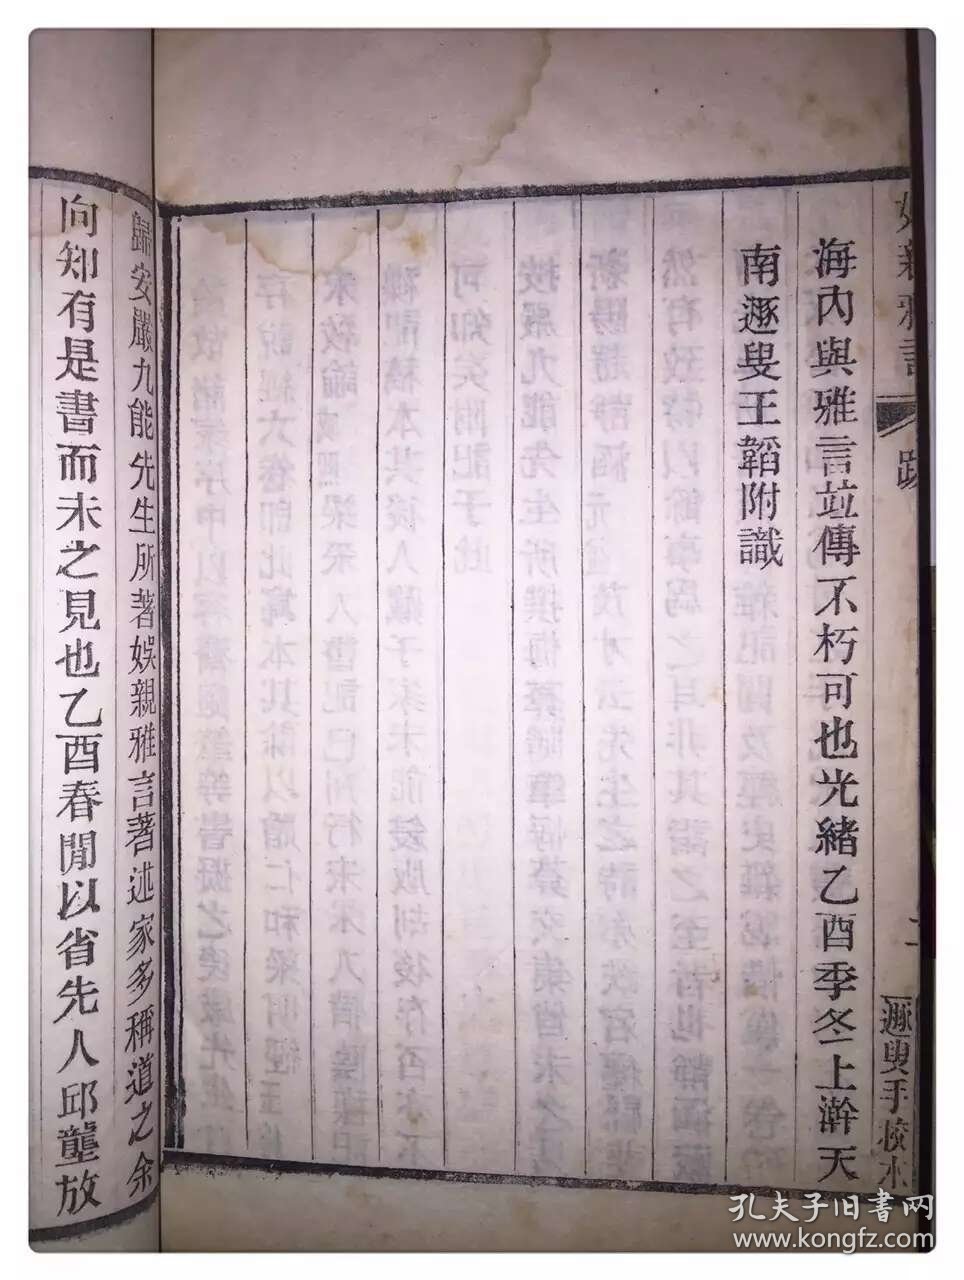 娛親雅言 跋
遯叟手校本
海內與雅言並傳不朽可也光緒乙酉季冬上澣天
南遯叟王韜附識
歸安嚴九能先生所著娛親雅言著述家多稱道之余
向知有是書而未之見也乙酉春閒以省先人邱壟放
孔夫子旧书网
www.kongfz.com